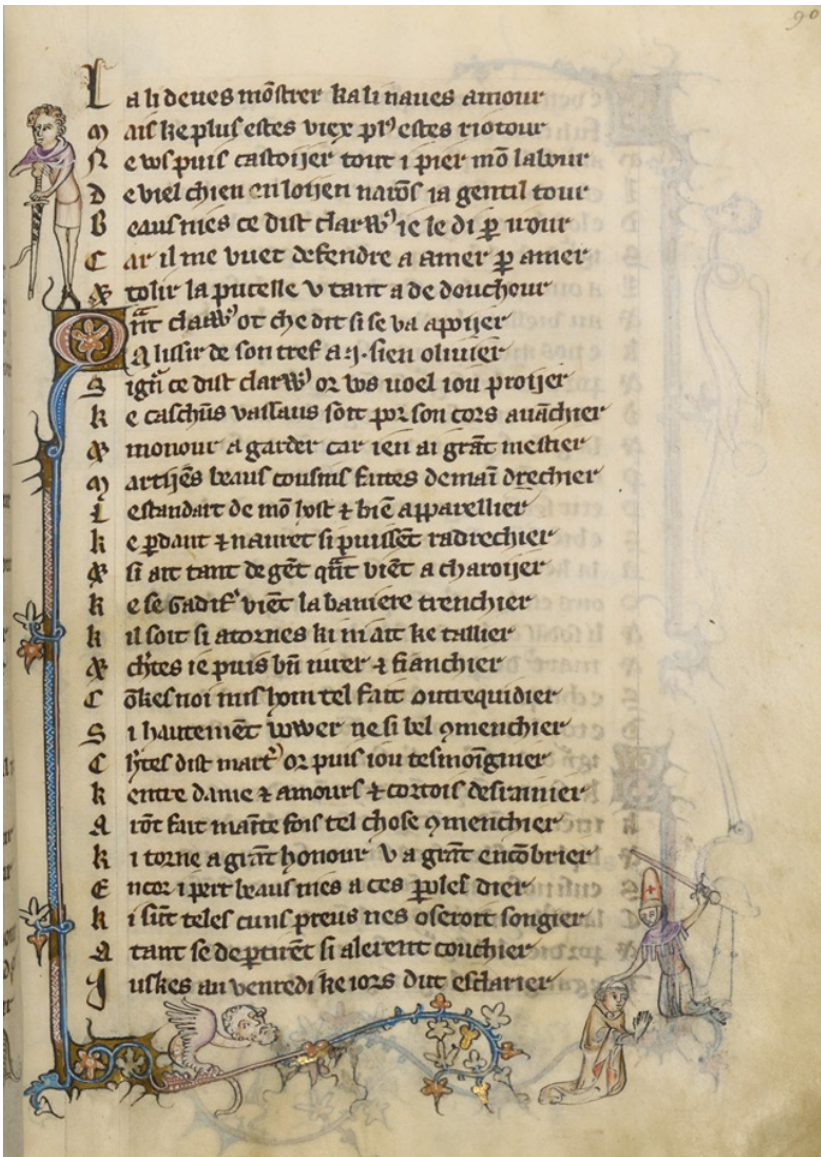 90
L a li deues mõstrer ka li naues amour
M ais ke plus estes viex plꝰ estes riotour
N e ws puis castoijer tout i pier mõ labour
D e viel chien en loijen narõs ia gentil tour
B eaus nies ce dist clarꝰ ie le di ꝑ uour
C ar il me vuet defendre a amer ꝑ amer
& tolir la pucelle v tant a de douchour
Qñt clarꝰ ot che dit si se va apoijer
A lissir de son tref a .j. sien oliuier
S ign̄ ce dist clarꝰ or ws uoel iou proijer
k e caschũs vassaus soit por son cors auãchier
& monour a garder car ien ai grãt mestier
M artijẽs beaus cousins faites demaĩ drechier
L estandart de mõ host ⁊ biẽ apparellier
k e ꝑdant ⁊ nauret si puissẽt radrechier
& si ait tant de gẽt qñt viẽt a charoijer
k e se gadifꝰ viẽt la baniere trenchier
k il soit si atornes ki ni ait ke taillier
& chtes ie puis bñ iurer ⁊ fianchier
C õkes noi nus hom tel fait outrequidier
S i hautemẽt wwer ne si bel ꝯmenchier
C htes dist martꝰ or puis iou tesmoĩgnier
k entre dame ⁊ amours ⁊ cortois desirarier
A rõt fait mainte fois tel chose ꝯmenchier
k i torne a grãt honour v a grãt encõbrier
E ncor i pert beaus nies a ces ꝑoles dier
k i sũt teles cuns preus nes oseroit songier
A tant se deꝑtirẽt si alerent couchier
J uskes au venredi ke iors dut esclarier